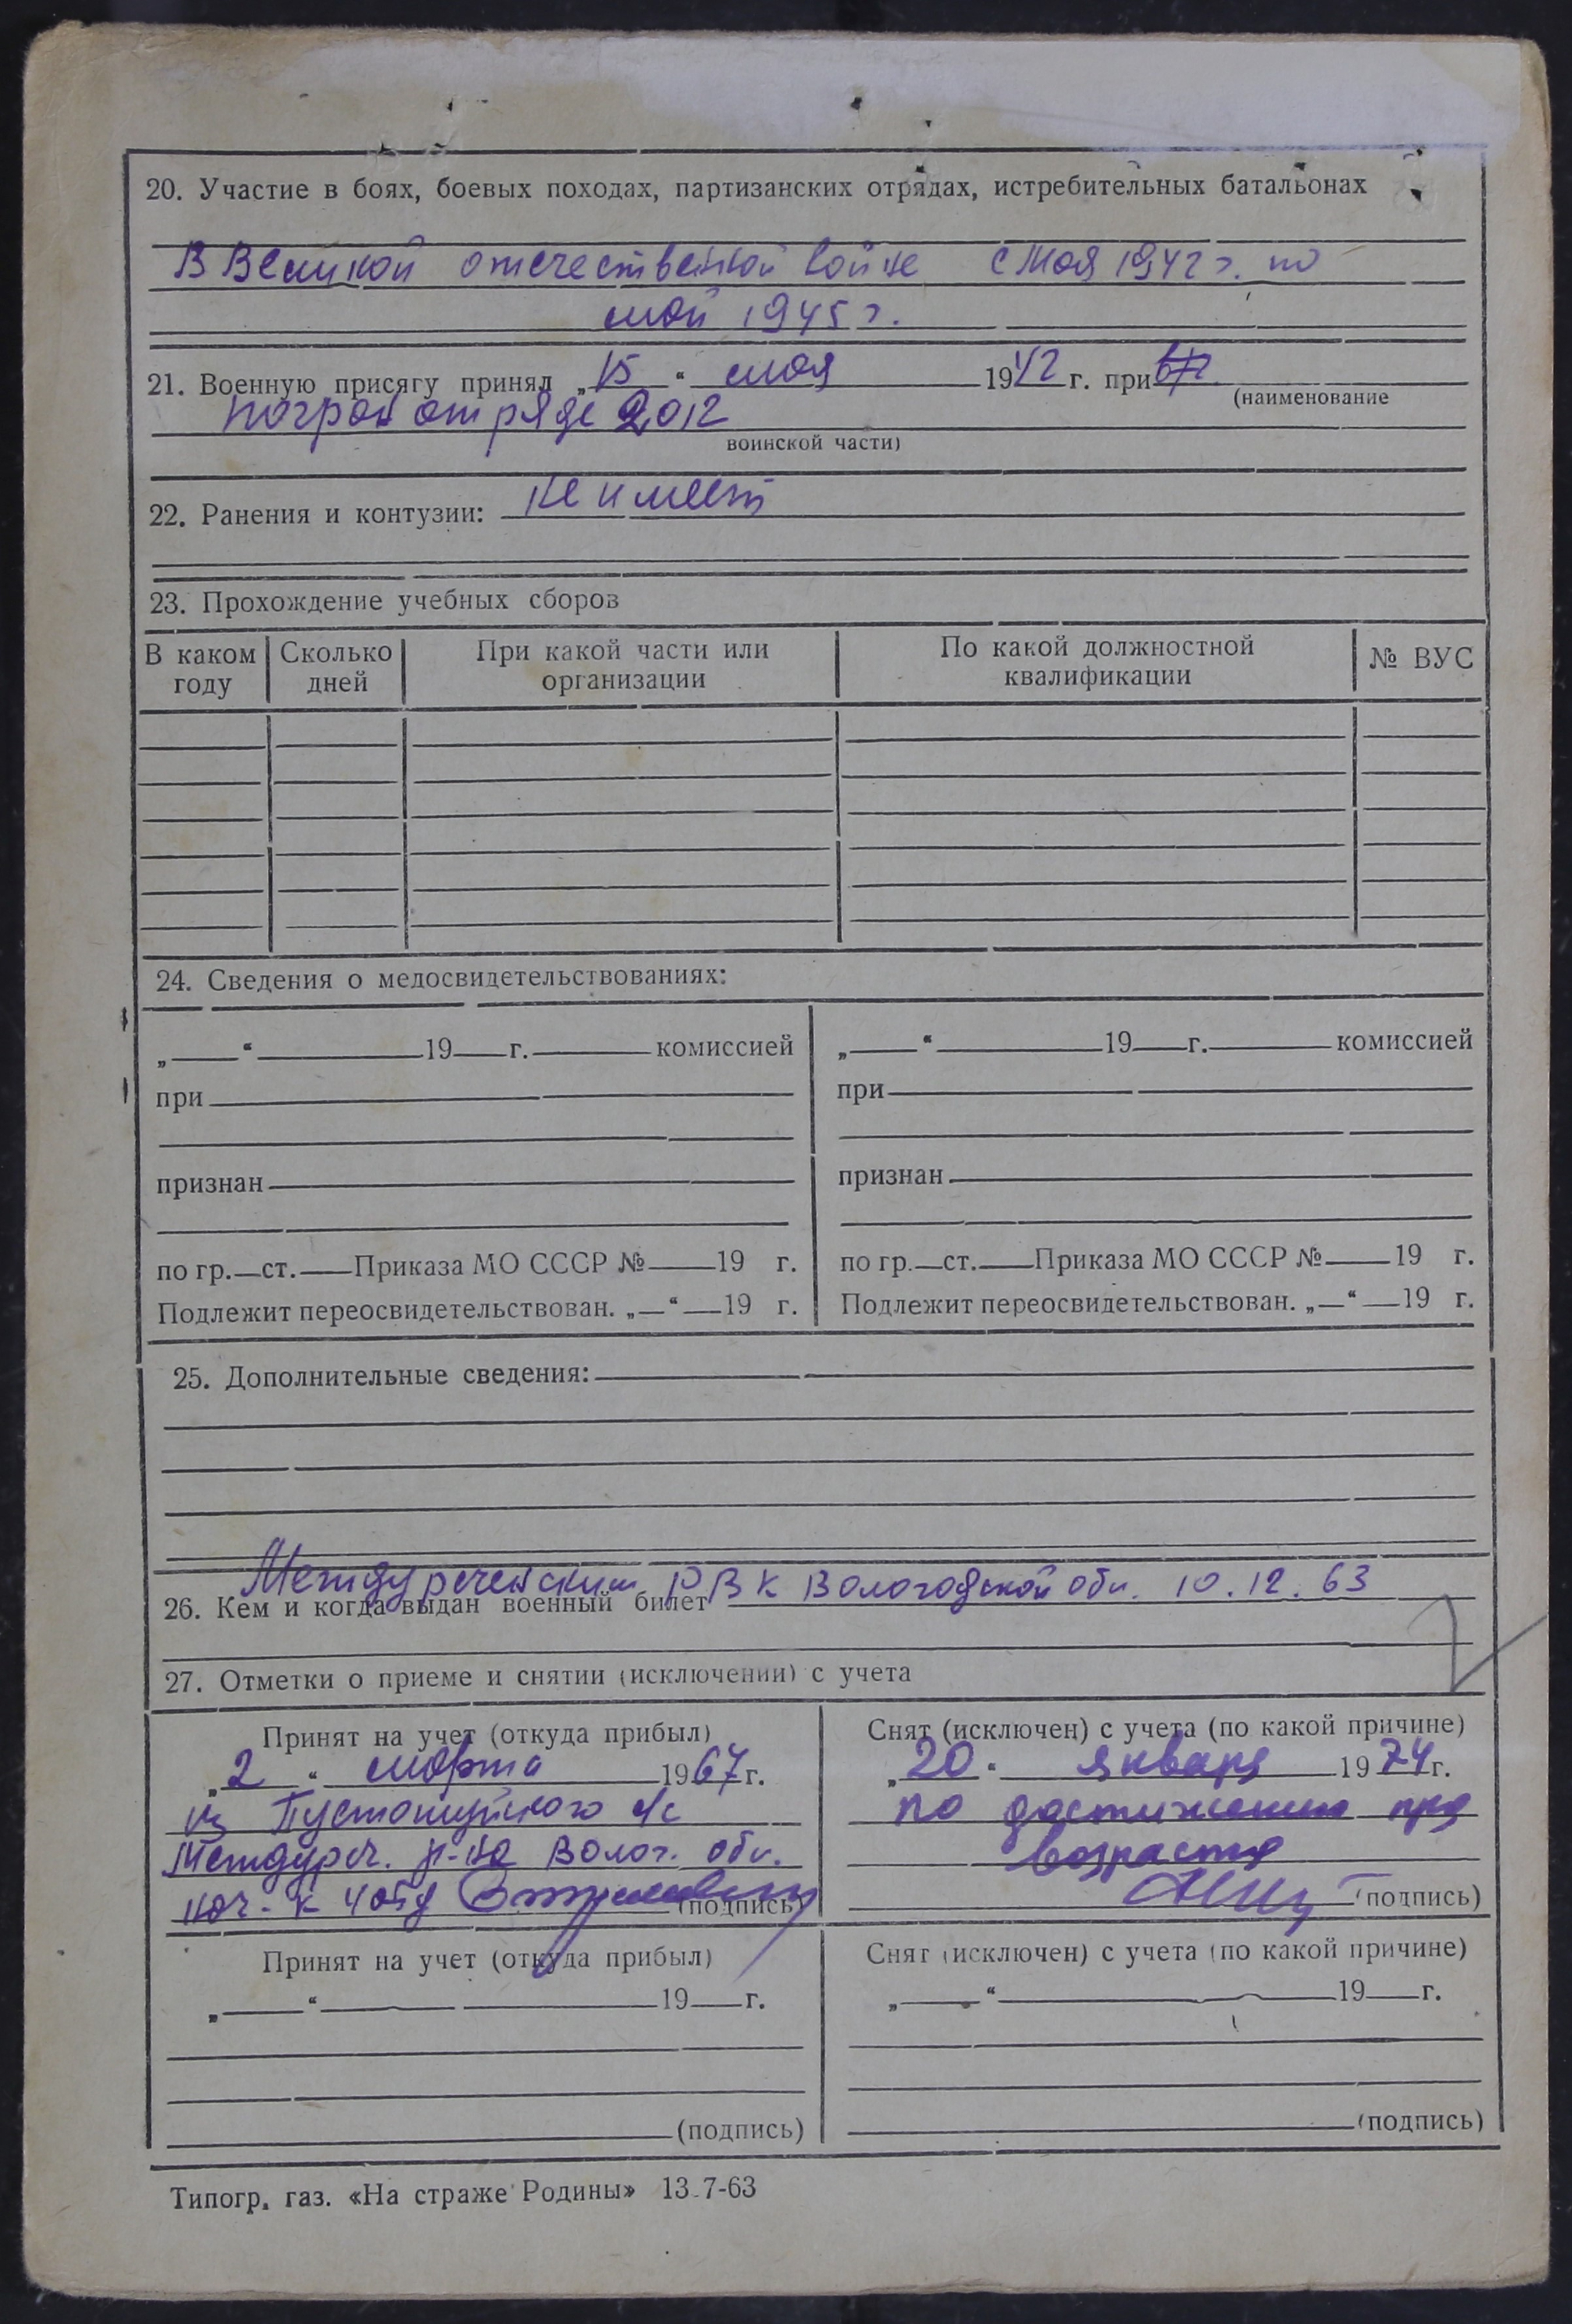 20. Участие в боях, боевых походах, партизанских отрядах, истребительных батальонах
В Великой отечественной войне с Мая 1942 г. по
май 1945 г.
21. Военную присягу принял „15“ мая 1942 г. при
(наименование
погран отряде 2012
воинской части)
22. Ранения и контузии: не имеет
23. Прохождение учебных сборов
В каком году Сколько дней При какой части или организации По какой должностной квалификации № ВУС
24. Сведения о медосвидетельствованиях:
„ “ 19 г. комиссией „ “ 19 г. комиссией
при при
признан признан
по гр. ст. Приказа МО СССР № 19 г. по гр. ст. Приказа МО СССР № 19 г.
Подлежит переосвидетельствован. „ “ 19 г. Подлежит переосвидетельствован. „ “ 19 г.
25. Дополнительные сведения:
Междуреченским РВК Вологодской обл. 10.12.63
26. Кем и когда выдан военный билет
27. Отметки о приеме и снятии (исключении) с учета
Принят на учет (откуда прибыл)
„2“ марта 1967 г.
из Пустошуйного с/с
Междуреч. р-на Волог. обл.
нач-к
(подпись)
Снят (исключен) с учета (по какой причине)
„20“ января 1974 г.
по достижению пред
возраста
(подпись)
Принят на учет (откуда прибыл) Снят (исключен) с учета (по какой причине)
„ “ 19 г. „ “ 19 г.
(подпись) (подпись)
Типогр. газ. «На страже Родины» 13.7-63